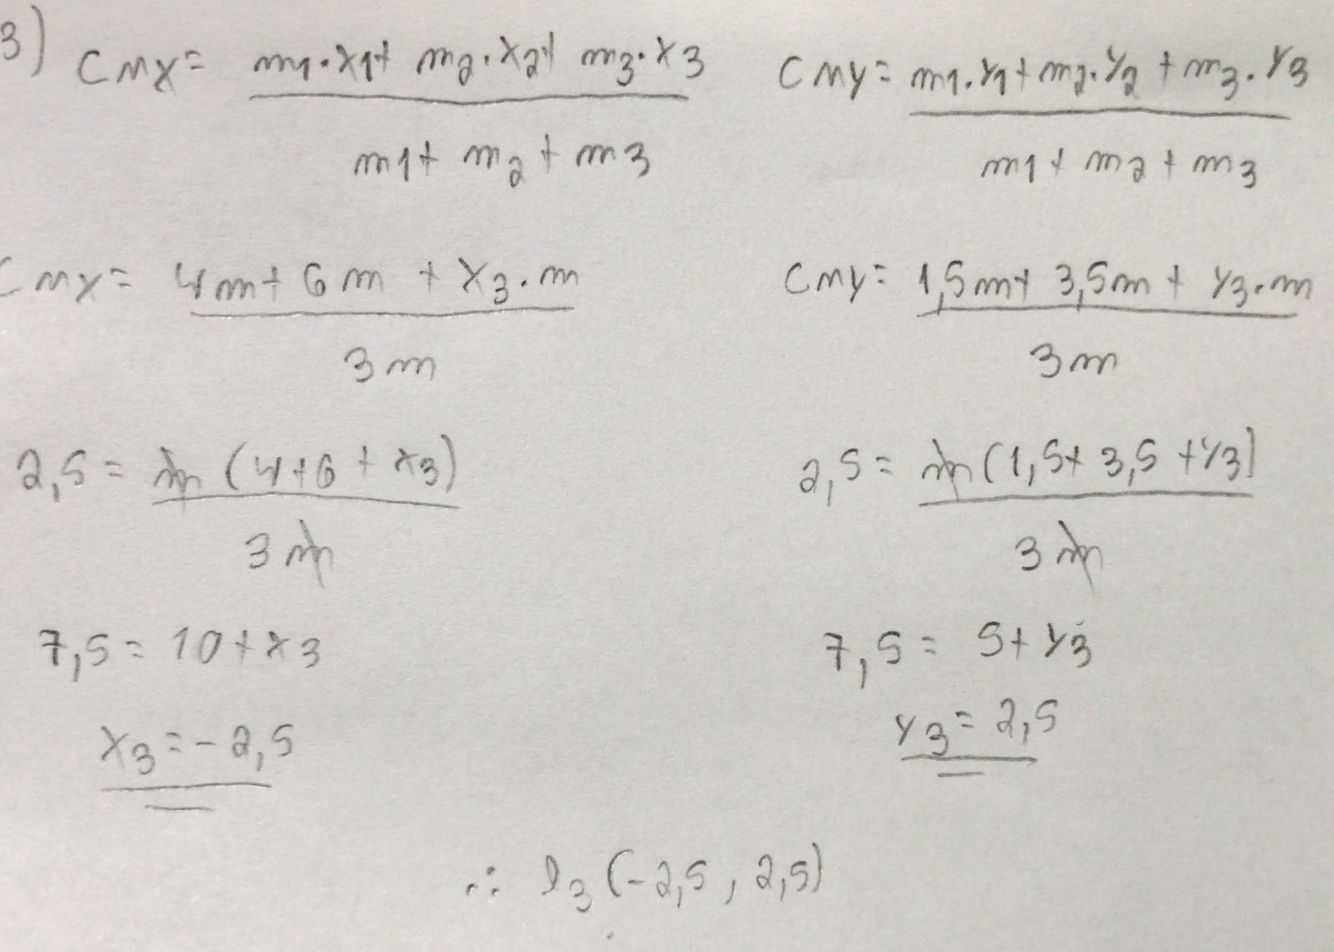 3) CMX = m1.x1 + m2.x2 + m3.x3 CMY = m1.Y1 + m2.Y2 + m3.Y3
m1 + m2 + m3 m1 + m2 + m3
CMX = 4m + 6m + x3.m CMY = 1,5m + 3,5m + Y3.m
3m 3m
2,5 = m (4+6 + x3) 2,5 = m (1,5 + 3,5 + Y3)
3m 3m
7,5 = 10 + x3 7,5 = 5 + Y3
x3 = -2,5 Y3 = 2,5
∴ l3 (-2,5, 2,5)